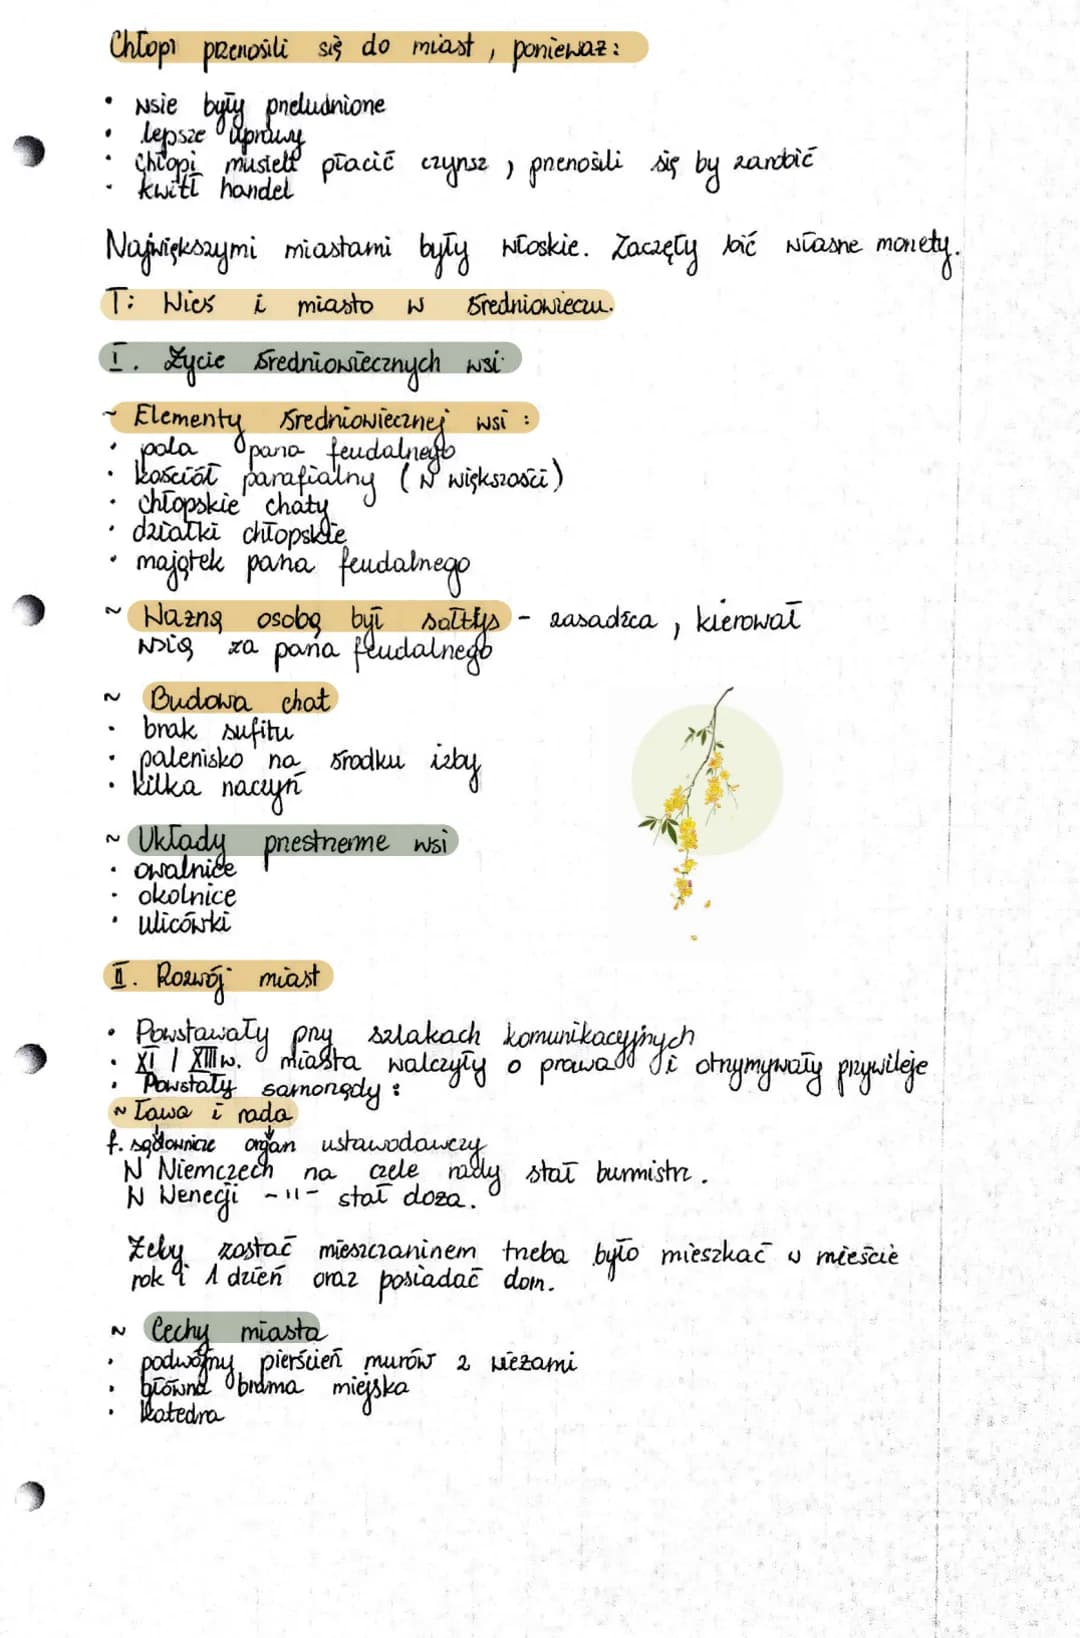 Chłopi przenosili się do miast, ponieważ:
• wsie były przeludnione
• lepsze uprawy
• chłopi musieli płacić czynsz, przenosili się by zarobić
• kwitł handel
Największymi miastami były włoskie. Zaczęły bić własne monety.
T: Wieś i miasto w średniowieczu.
I. Życie średniowiecznych wsi
~ Elementy średniowiecznej wsi:
• pola pana feudalnego
• kościół parafialny (w większości)
• chłopskie chaty
• działki chłopskie
• majątek pana feudalnego
~ Ważną osobą był sołtys - zasadźca, kierował
wsią za pana feudalnego
~ Budowa chat
• brak sufitu
• palenisko na środku izby
• kilka naczyń
~ Układy przestrzenne wsi
• owalnice
• okolnice
• ulicówki
II. Rozwój miast
• Powstawały przy szlakach komunikacyjnych
• XI / XIII w. miasta walczyły o prawa i otrzymywały przywileje
• Powstały samorządy:
~ Ława i rada
f. sądownicze organ ustawodawczy
W Niemczech na czele rady stał burmistrz.
W Wenecji -11- stał doża.
Żeby zostać mieszczaninem trzeba było mieszkać w mieście
rok i 1 dzień oraz posiadać dom.
~ Cechy miasta
• podwójny pierścień murów z wieżami
• główna brama miejska
• katedra